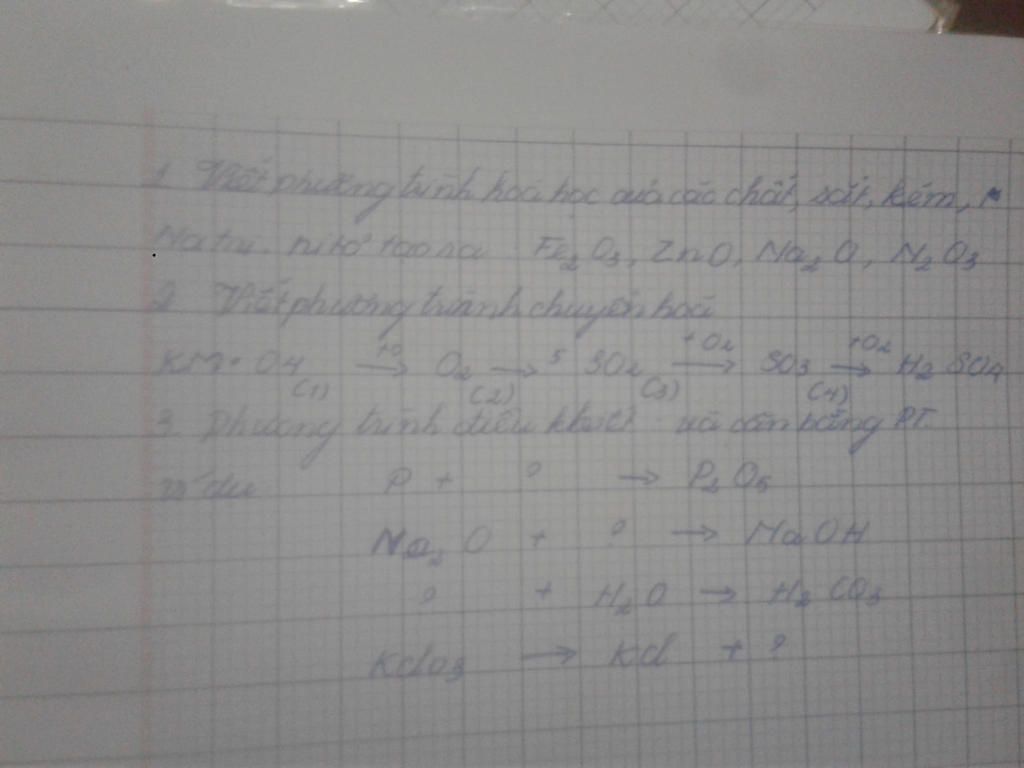 1. Viết phương trình hoá học của các chất, sắt, kẽm,
Natri. nitơ tạo ra Fe2O3, ZnO, Na2O, N2O3
2. Viết phương trình chuyển hoá
KMnO4 → O2 → S SO2 +O2 → SO3 +O2 → H2SO4
(1) (2) (3) (4)
3. Phương trình điều và cân bằng PT.
ví dụ P + ? → P2O5
Na2O + ? → NaOH
? + H2O → H2CO3
KClO3 → KCl + ?